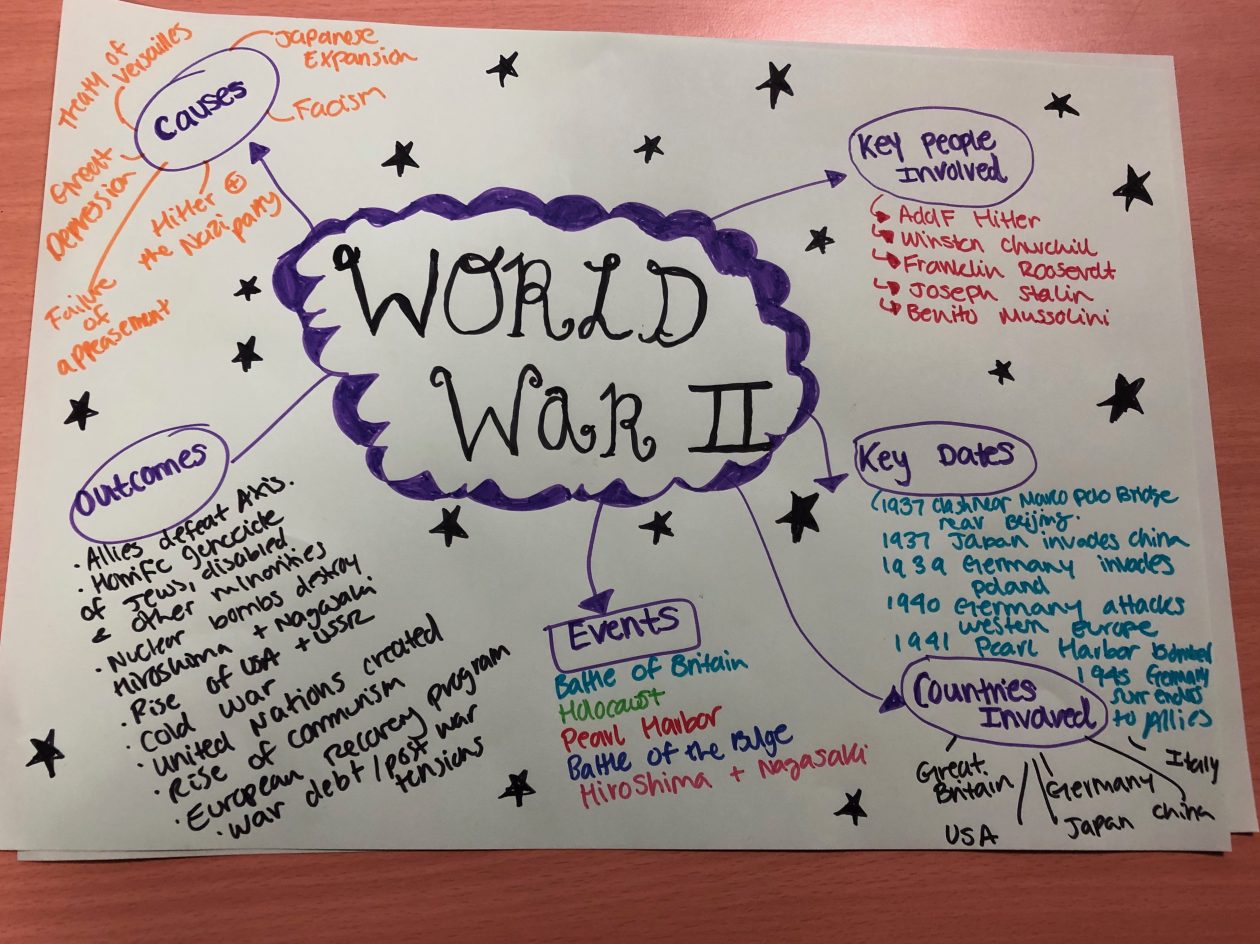 WORLD
WAR II
Causes
Treaty of
Versailles
Japanese
Expansion
Facism
Great
Depression
Hitler +
the Nazi party
Failure
of
appeasement
Key People
Involved
Adolf Hitler
Winston Churchill
Franklin Roosevelt
Joseph Stalin
Benito Mussolini
Key Dates
1937 clash near Marco Polo Bridge
near Beijing.
1937 Japan invades China
1939 Germany invades
Poland
1940 Germany attacks
Western Europe
1941 Pearl Harbor Bombed
1945 Germany
surrenders
to Allies
Outcomes
• Allies defeat Axis.
• Horrific genocide
of Jews, disabled
& other minorities
• Nuclear bombs destroy
Hiroshima + Nagasaki
• Rise of USA + USSR
• Cold War
• United Nations created
• Rise of communism
• European recovery program
• War debt / post war
tensions
Events
Battle of Britain
Holocaust
Pearl Harbor
Battle of the Bulge
Hiroshima + Nagasaki
Countries
Involved
Great
Britain
USA
Germany
Japan
China
Italy